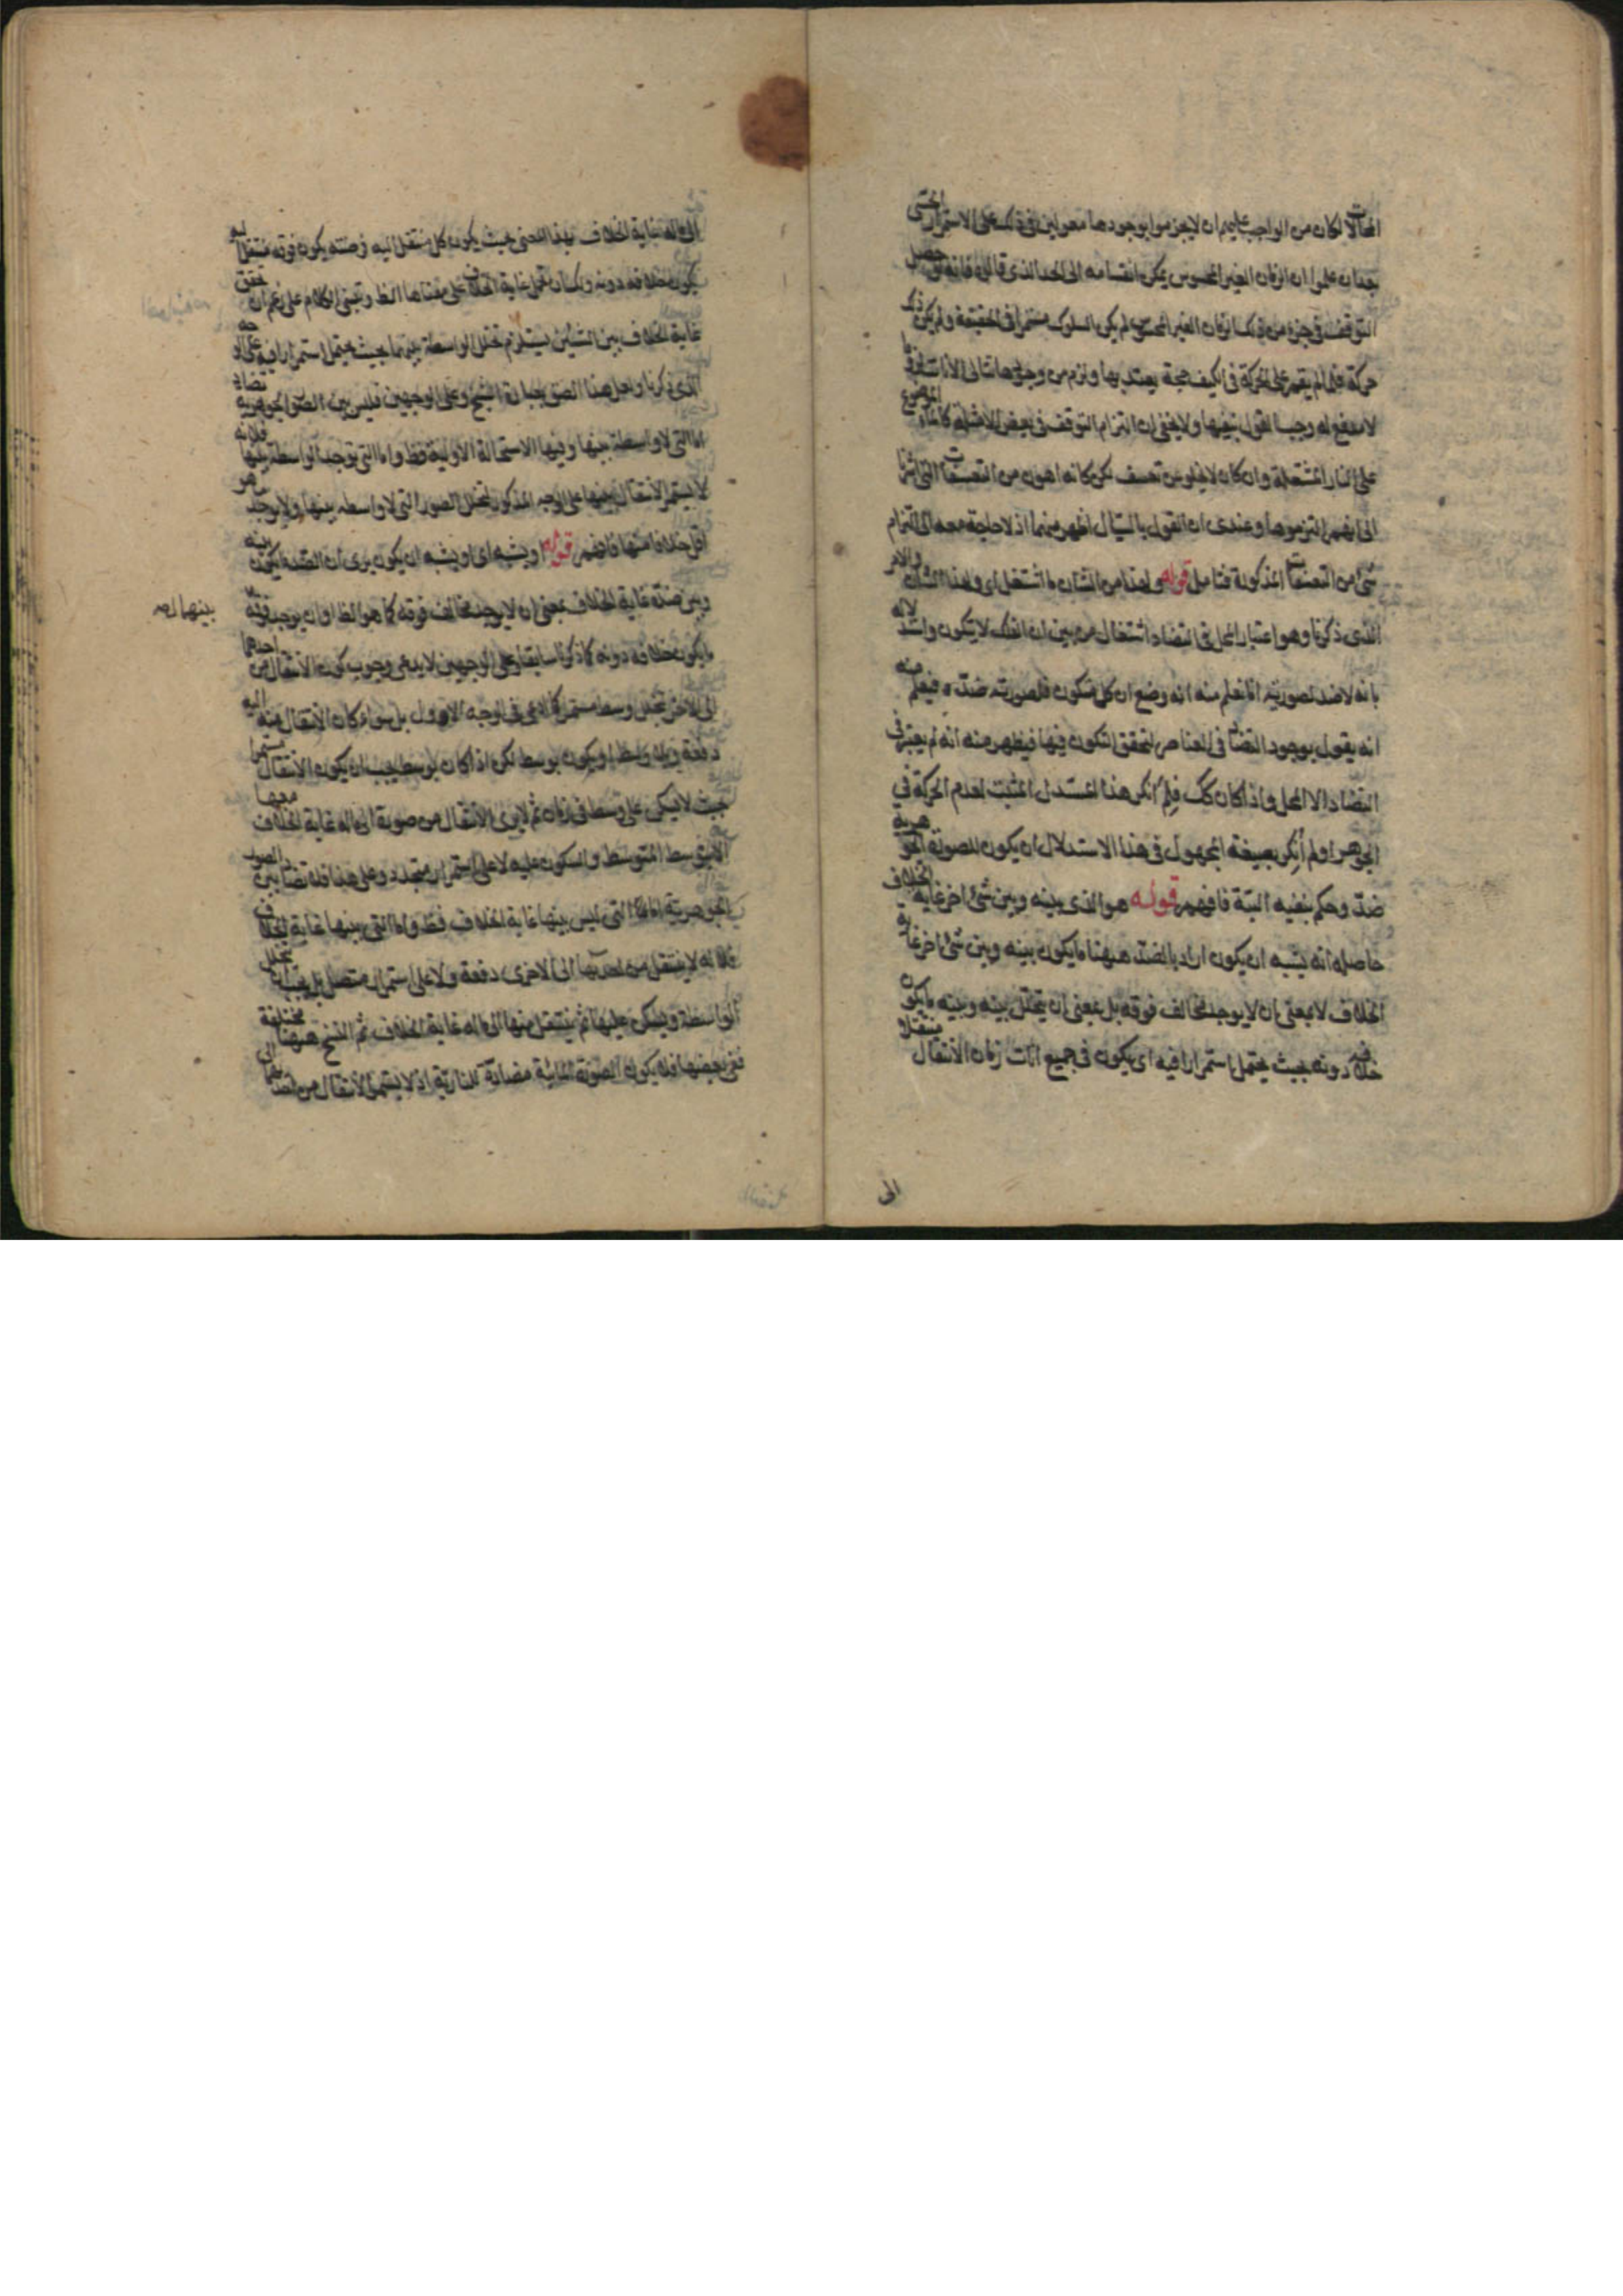 المحالات لكان من الواجب عليهم ان لا يجزموا بوجودها معولين في ذلك على الاستمرار الحسى
بعد ان علموا ان الزمان الغير المحسوس يمكن انقسامه الى الحد الذى قالوه فانه لو حصل
التوقف فى جزء من ذلك الزمان الغير المحسوس لم يكن السلوك مستمرا فى الحقيقة ولم يكن ذلك
حركة فلما لم يقم على الحركة فى الكيف حجة يعتد بها ولزم من وجودها تتالى الانات
لا مدفع له وجب القول بنفيها ولا يخفى ان التزام التوقف فى بعض كالماء الموضوع
على النار المشتعلة وان كان لا يخلو عن تعسف لكن كانه اهون من التعسفات التى اشرنا
الى انهم التزموها وعندى ان القول بالسيال اظهر منهما اذ لا حاجة معه الى التزام
شئ من التعسفات المذكورة فتامل قوله ولهذا من الشان ما اشتغل اى ولهذا الشان والامر
الذى ذكرنا وهو اعتبار المحل فى التضاد اشتغال من بين ان الفلك لا يتكون واستدلاله
بانه لا ضد لصورته انا نعلم منه انه وضع ان كل متكون فلصورته ضد فيعلم منه
انه يقول بوجود التضاد فى العناصر لتحقق التكون فيها فيظهر منه انه لم يعتبر فى
التضاد الا المحل واذا كان كك فلم انكر هذا المستدل المثبت لعدم الحركة فى
الجوهر اولم انكر بصيغة المجهول فى هذا الاستدلال ان يكون للصورة الجوهرية
ضد وحكم بنفيه البتة فافهم قوله هو الذى بينه وبين شئ اخر غاية الخلاف
حاصله انه يشبه ان يكون اراد بالضد ههنا ما يكون بينه وبين شئ اخر غاية
الخلاف لا بمعنى ان لا يوجد مخالف فوقه بل بمعنى ان يتخلل بينه وبينه ما يكون
خلافه دونه بحيث يحتمل استمرارا فيه اى يكون فى جميع انات زمان الانتقال منتقلا
الى
الى ما له غاية الخلاف بهذا المعنى بحيث يكون كل منتقل اليه فوقه منتقل اليه
يكون خلافه دونه ولك ان تحمل غاية الخلاف على معناها الظ وتبنى الكلام على زعم ان تحقق
غاية الخلاف بين الشيئين يستلزم تخلل الواسطة بينهما بحيث يحتمل استمرارا فيه على الوجه
الذى ذكرنا وعلى الوجهين فليس بين الصور الجوهرية تضاد
اما التى لا واسطة بينها وفيها الاستحالة الاولية فظ واما التى توجد الواسطة بينها فلانه
لا يستمر الانتقال بينها على الوجه المذكور لتخلل الصور التى لا واسطة بينها ولا يوجد ما هو
اقل خلافا منها فافهم قوله او يشبه اى او يشبه ان يكون يرى ان الضد ما يكون بينه
وبين ضده غاية الخلاف بمعنى ان لا يوجد مخالف فوقه كما هو الظ او ان يوجد
بينهما
ما يكون خلافه دونه كما ذكرنا سابقا وعلى الوجهين لا يدعى وجوب كون الانتقال من احدهما
الى الاخر بتخلل وسط مستمر كما ادعى فى الوجه الاول بل سواء كان الانتقال منه اليه
دفعة وبلا واسطة او يكون بوسط لكن اذا كان بوسط يجب ان يكون الانتقال مستمرا
بحيث لا يسكن على وسط فى زمان ثم لا يرى الانتقال من صورة الى ما له غاية الخلاف معها
الا بتوسط المتوسط والسكون عليه لا على استمرار متجدد وعلى هذا فلا تضاد بين الصور
الجوهرية اما التى ليس بينها غاية الخلاف فظ واما التى بينها غاية الخلاف
فلانه لا ينتقل من احدها الى الاخرى دفعة ولا على استمرار متصل بل يجب ان يتخلل
الواسطة ويسكن عليها ثم ينتقل منها الى ما له غاية الخلاف ثم النسخ ههنا مختلفة
ففى بعضها فلا يكون الصورة المائية مضادة للنارية اذ لا يستمر الانتقال من